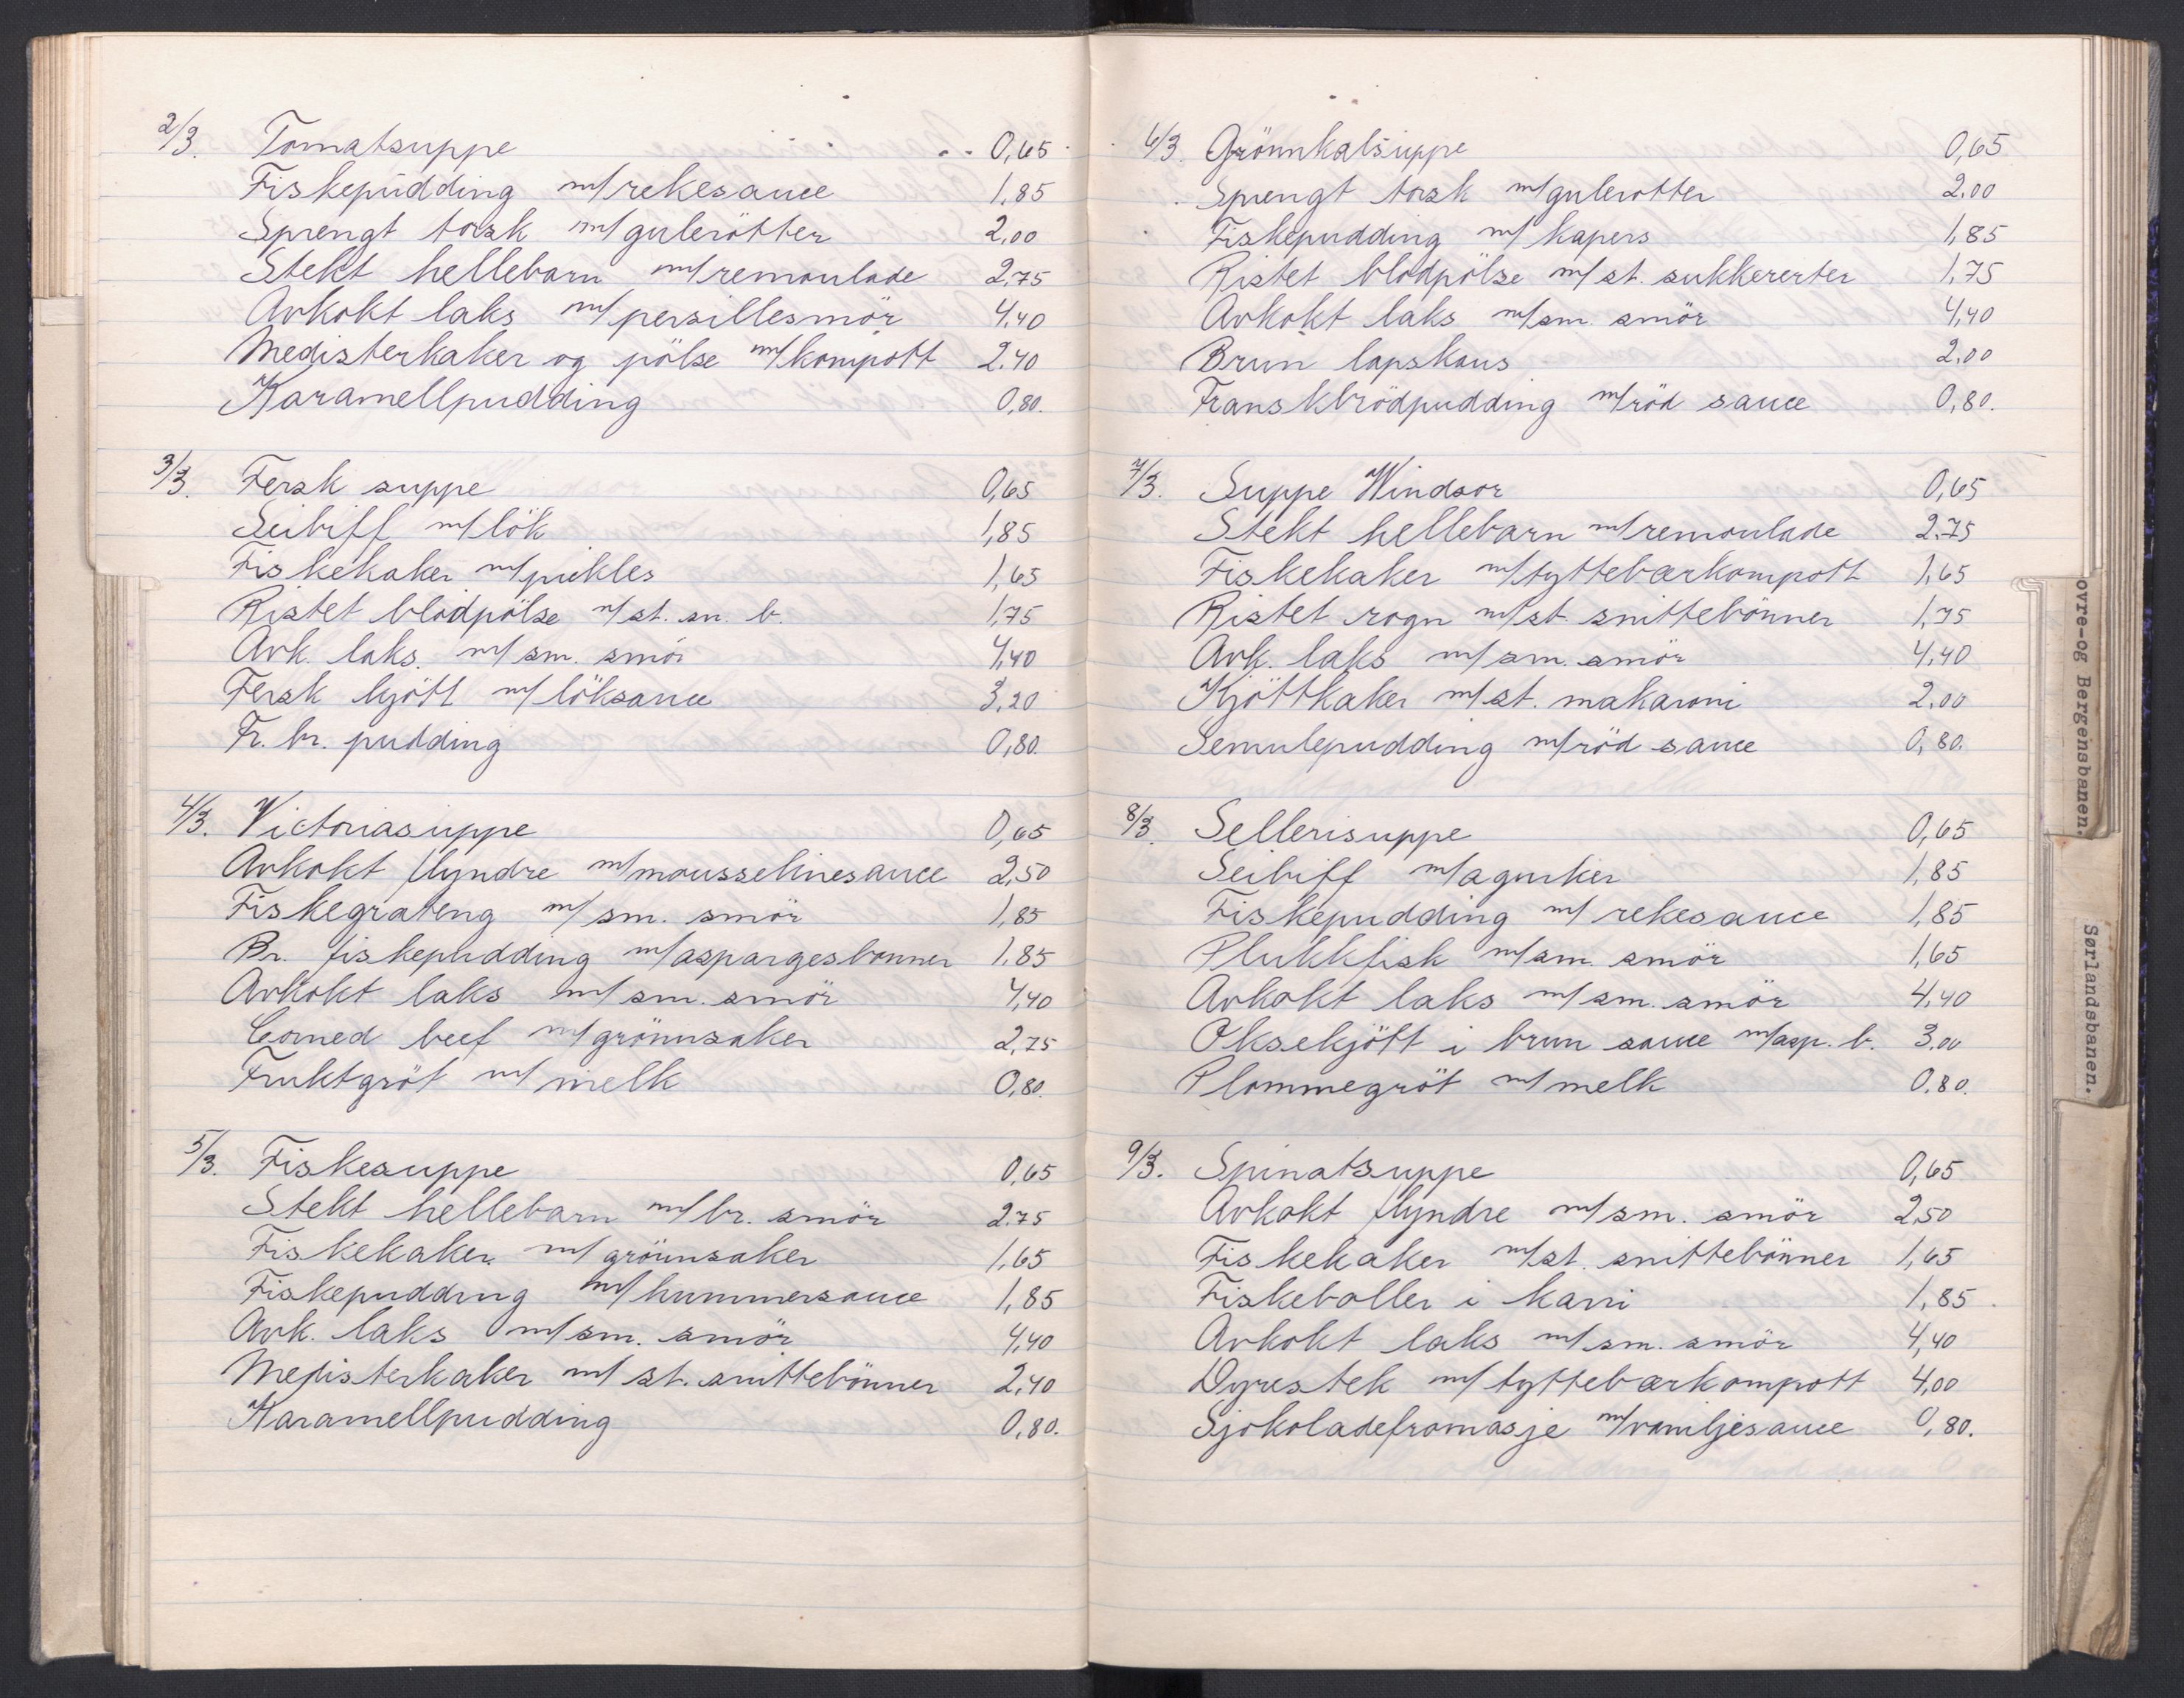 2/3. Tomatsuppe 0,65
Fiskepudding m/rekesauce 1,85
Sprengt torsk m/gulerötter 2,00
Stekt hellebarn m/remoulade 2,75
Avkokt laks m/persillesmör 4,40
Medisterkaker og pölse m/kompott 2.40
Karamellpudding 0,80.
3/3. Fersk suppe 0,65
Seibiff m/lök 1,85
Fiskekaker m/pickles 1,65
Ristet blodpölse m/st. sn. b. 1,75
Avk. laks. m/sm. smör 4,40
Fersk kjött m/löksauce 3,20
Fr. br. pudding 0,80.
4/3. Victoriasuppe 0,65
Avkokt flyndre m/mousselinesauce 2,50
Fiskegrateng m/sm. smör 1,85
Br. fiskepudding m/aspargesbönner 1.85
Avkokt laks m/sm. smör 4,40
Corned beef m/grönnsaker 2,75
Fruktgröt m/melk 0,80.
5/3. Fiskesuppe 0,65
Stekt hellebarn m/br. smör 2.75
Fiskekaker m/grönnsaker 1,65
Fiskepudding m/hummersauce 1,85
Avk. laks m/sm. smör 4,40
Medisterkaker m/st. snittebönner 2,40
Karamellpudding 0,80.
6/3. Grönnkålsuppe 0,65
Sprengt torsk m/gulerotter 2,00
Fiskepudding m/kapers 1,85
Ristet blodpölse m/st. sukkererter 1,75
Avkokt laks m/sm. smör 4,40
Brun lapskaus 2.00
Franskbrödpudding m/röd sauce 0,80.
7/3. Suppe Windsor 0,65
Stekt hellebarn m/remoulade 2.75
Fiskekaker m/tyttebærkompott 1,65
Ristet rogn m/st. snittebönner 1,75
Avk. laks m/sm. smör 4,40
Kjöttkaker m/st. makaroni 2.00
Semulepudding m/röd sauce 0,80.
8/3. Sellerisuppe 0,65
Seibiff m/agurker 1,85
Fiskepudding m/rekesauce 1,85
Plukkfisk m/sm. smör 1,65
Avkokt laks m/sm. smör 4,40
Oksekjött i brun sauce m/asp. b. 3.00
Plommegröt m/melk 0.80.
9/3. Spinatsuppe 0,65
Avkokt flyndre m/sm. smör 2,50
Fiskekaker m/st. snittebönner 1,65
Fiskeboller i karri 1,85
Avkokt laks m/sm. smör 4,40
Dyrestek m/tyttebærkompott 4,00
Sjokoladefromasje m/vaniljesauce 0,80.
ovre-og Bergensbanen.
Sørlandsbanen.